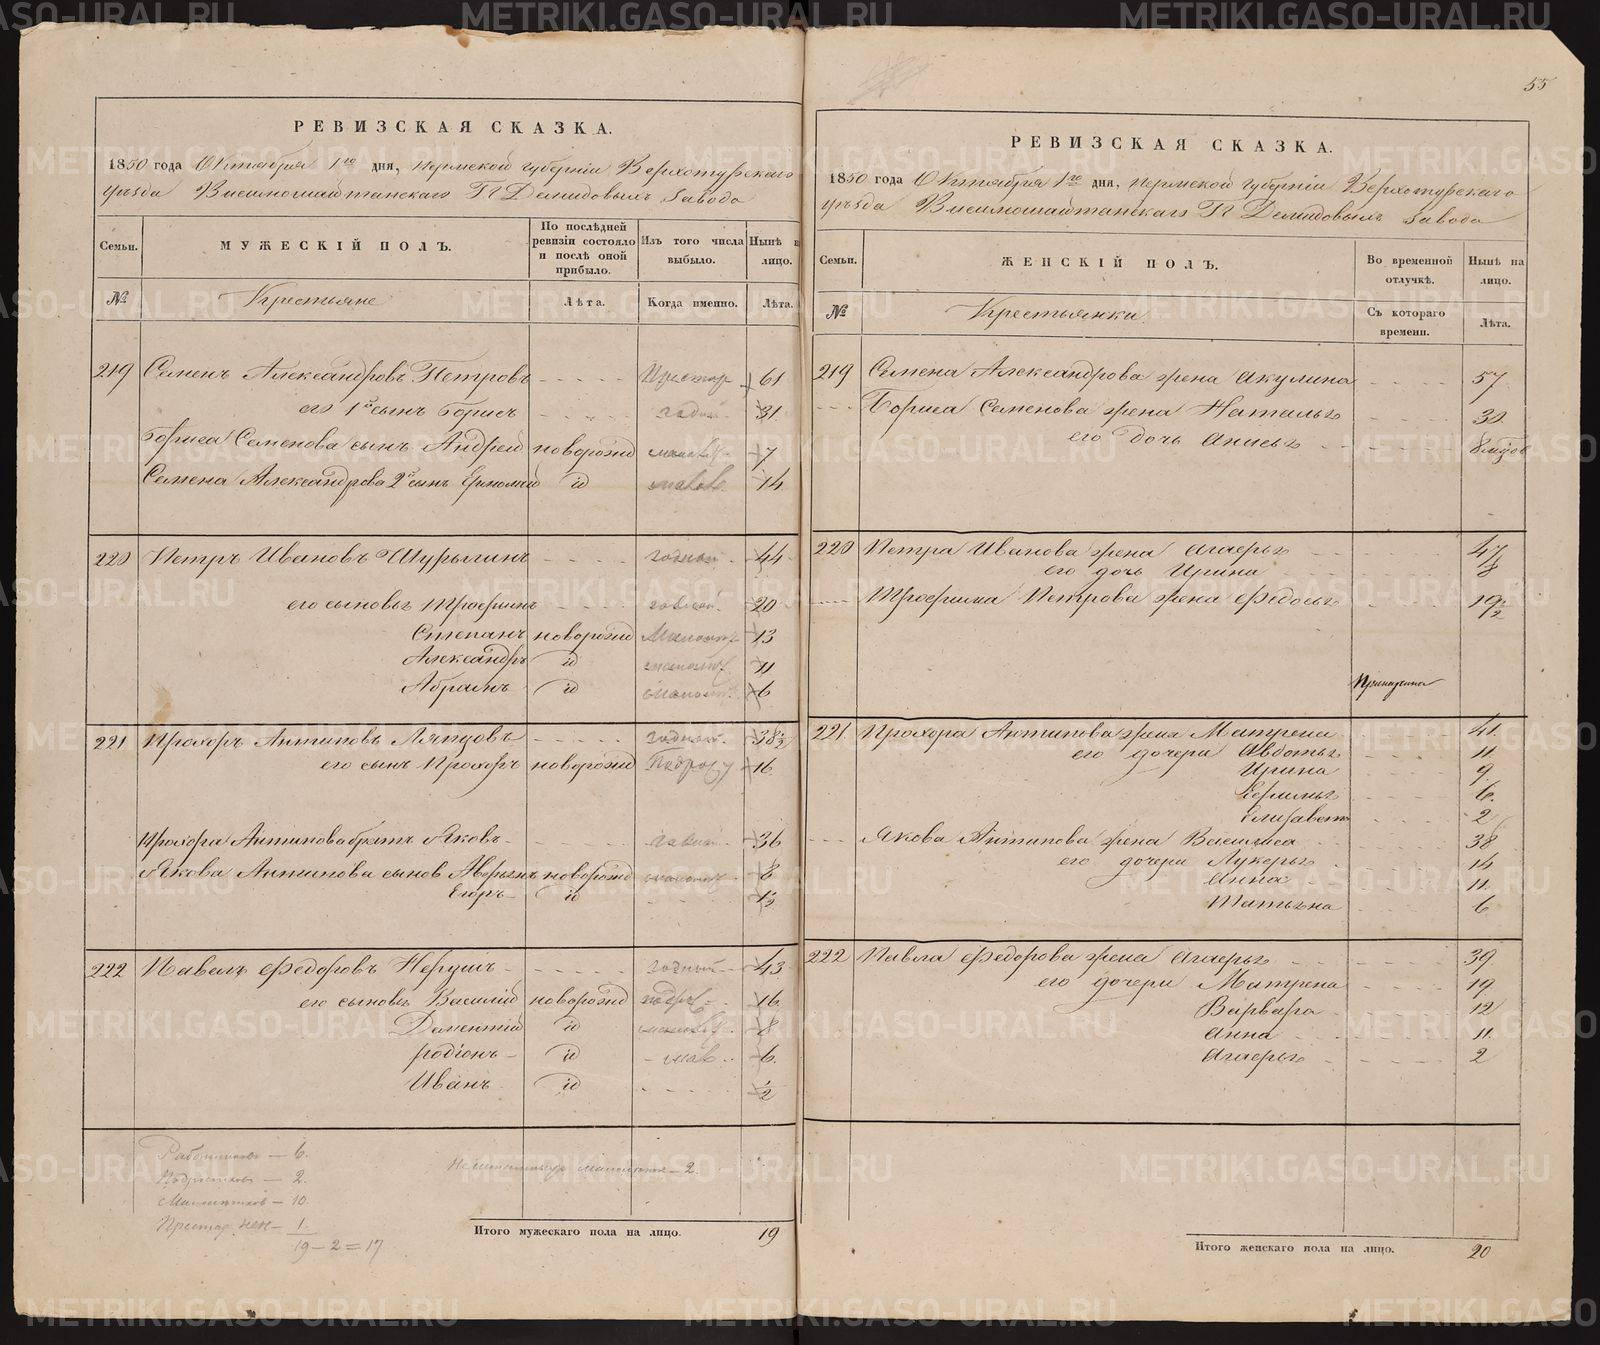 55
РЕВИЗСКАЯ СКАЗКА.
1850 года Октября 1го дня, Пермской губернiи Верхотурскаго
уѣзда Висимошайтанскаго П Демидовыхъ завода
Семьи.
МУЖЕСКIЙ ПОЛЪ.
По послѣдней ревизiи состояло и послѣ оной прибыло.
Изъ того числа выбыло.
Нынѣ на лицо.
№
Крестьяне
Лѣта.
Когда именно.
Лѣта.
219 Семенъ Александровъ Петровъ - - - - Престар 61
его 1й сынъ Борисъ - - - - годный 31
Бориса Семенова сынъ Андрей новорожд малолѣт 7
Семена Александрова 2й сынъ Ермолай id малол 14
220 Петръ Ивановъ Шурыгинъ - - - - годный 44
его сыновья Трофимъ - - - - годный 20
Степанъ новорожд Малолѣт 13
Александръ id малолѣт 11
Абрамъ id малолѣт 6
221 Прохоръ Антиповъ - - - - годный 38½
его сынъ Прохоръ новорожд Подрос 16
Прохора Антипова братъ Яковъ - - - - годный 36
Якова Антипова сынов новорожд малолѣт 8
Егоръ id - - - - 1½
222 Павелъ Федоровъ - - - - годный 43
его сыновья Василiй новорожд подр 16
Дементiй id малолѣт 8
Родiонъ id мал 6
Иванъ id - - - - ½
Работниковъ — 6.
Подростковъ — 2.
Малолѣтковъ — 10.
Престар. — 1.
19 — 2 = 17
малолѣтковъ — 2.
Итого мужескаго пола на лицо. 19
РЕВИЗСКАЯ СКАЗКА.
1850 года Октября 1го дня, Пермской губернiи Верхотурскаго
уѣзда Висимошайтанскаго П Демидовыхъ завода
Семьи.
ЖЕНСКIЙ ПОЛЪ.
Во временной отлучкѣ.
Нынѣ на лицо.
№
Крестьянки
Съ котораго времени.
Лѣта.
219 Семена Александрова жена Акулина - - - - 57
Бориса Семенова жена Наталья - - - - 30
его дочь Анисья - - - - 8 мѣсов
220 Петра Иванова жена Агафья - - - - 47
его дочь Ирина - - - - 8
Трофима Петрова жена Федосья - - - - 19½
221 Прохора Антипова жена Матрена - - - - 41
его дочери Авдотья - - - - 11
Ирина - - - - 9
- - - - 6
Елизавета - - - - 2
Якова Антипова жена Василиса - - - - 38
его дочери Лукерья - - - - 14
Анна - - - - 11
Татьяна - - - - 6
222 Павла Федорова жена Агафья - - - - 39
его дочери Матрена - - - - 19
Варвара - - - - 12
Анна - - - - 11
Агафья - - - - 2
Итого женскаго пола на лицо. 20
METRIKI.GASO-URAL.RU